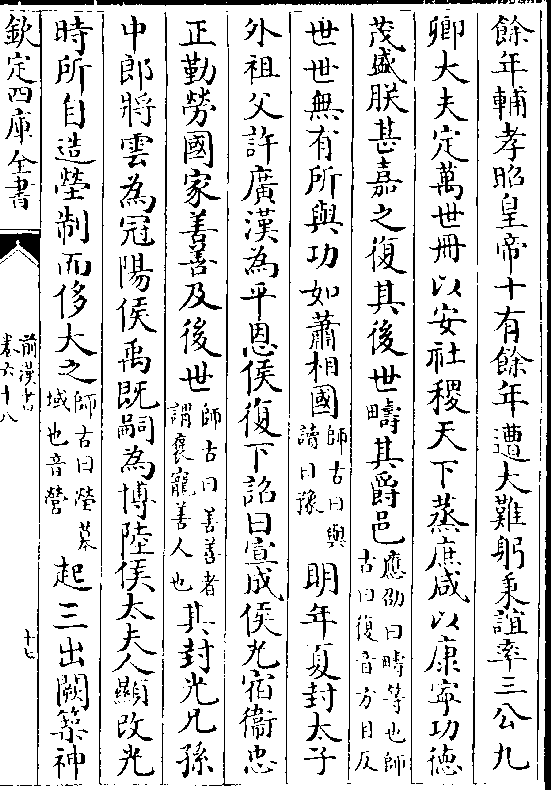 餘年輔孝昭皇帝十有餘年遭大難躬秉誼率三公九
卿大夫定萬世冊以安社稷天下蒸庶咸以康寧功德
茂盛朕甚嘉之復其後世疇其爵邑應劭曰疇等也師古曰復音方目反
世世無有所與功如蕭相國師古曰與讀曰豫明年夏封太子
外祖父許廣漢為平恩侯復下詔曰宣成侯光宿衞忠
正勤勞國家善善及後世師古曰善善者謂褒寵善人也其封光兄孫
中郎將雲為冠陽侯禹既嗣為博陸侯太夫人顯改光
時所自造塋制而侈大之師古曰塋墓域也音營起三出闕築神
欽定四庫全書
前漢書
卷六十八
十七